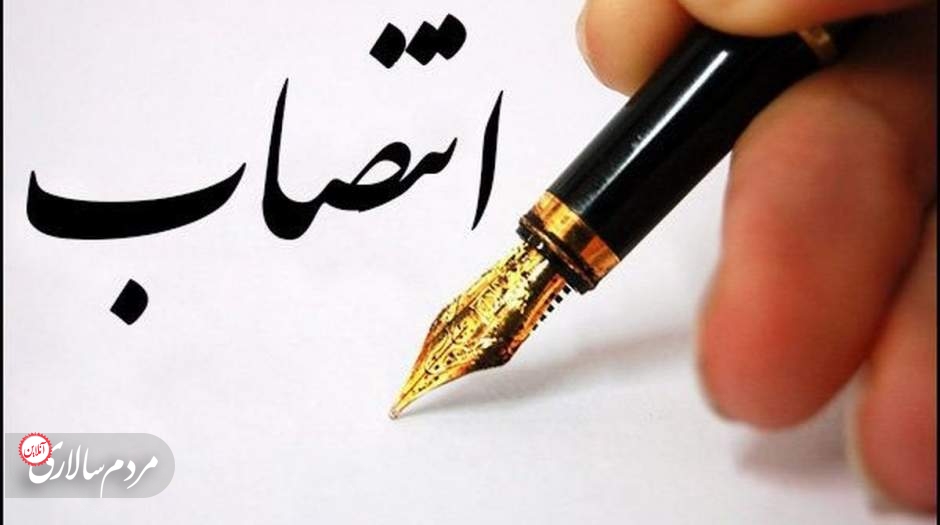 انتصاب
مردم‌سالاری
آنلاین